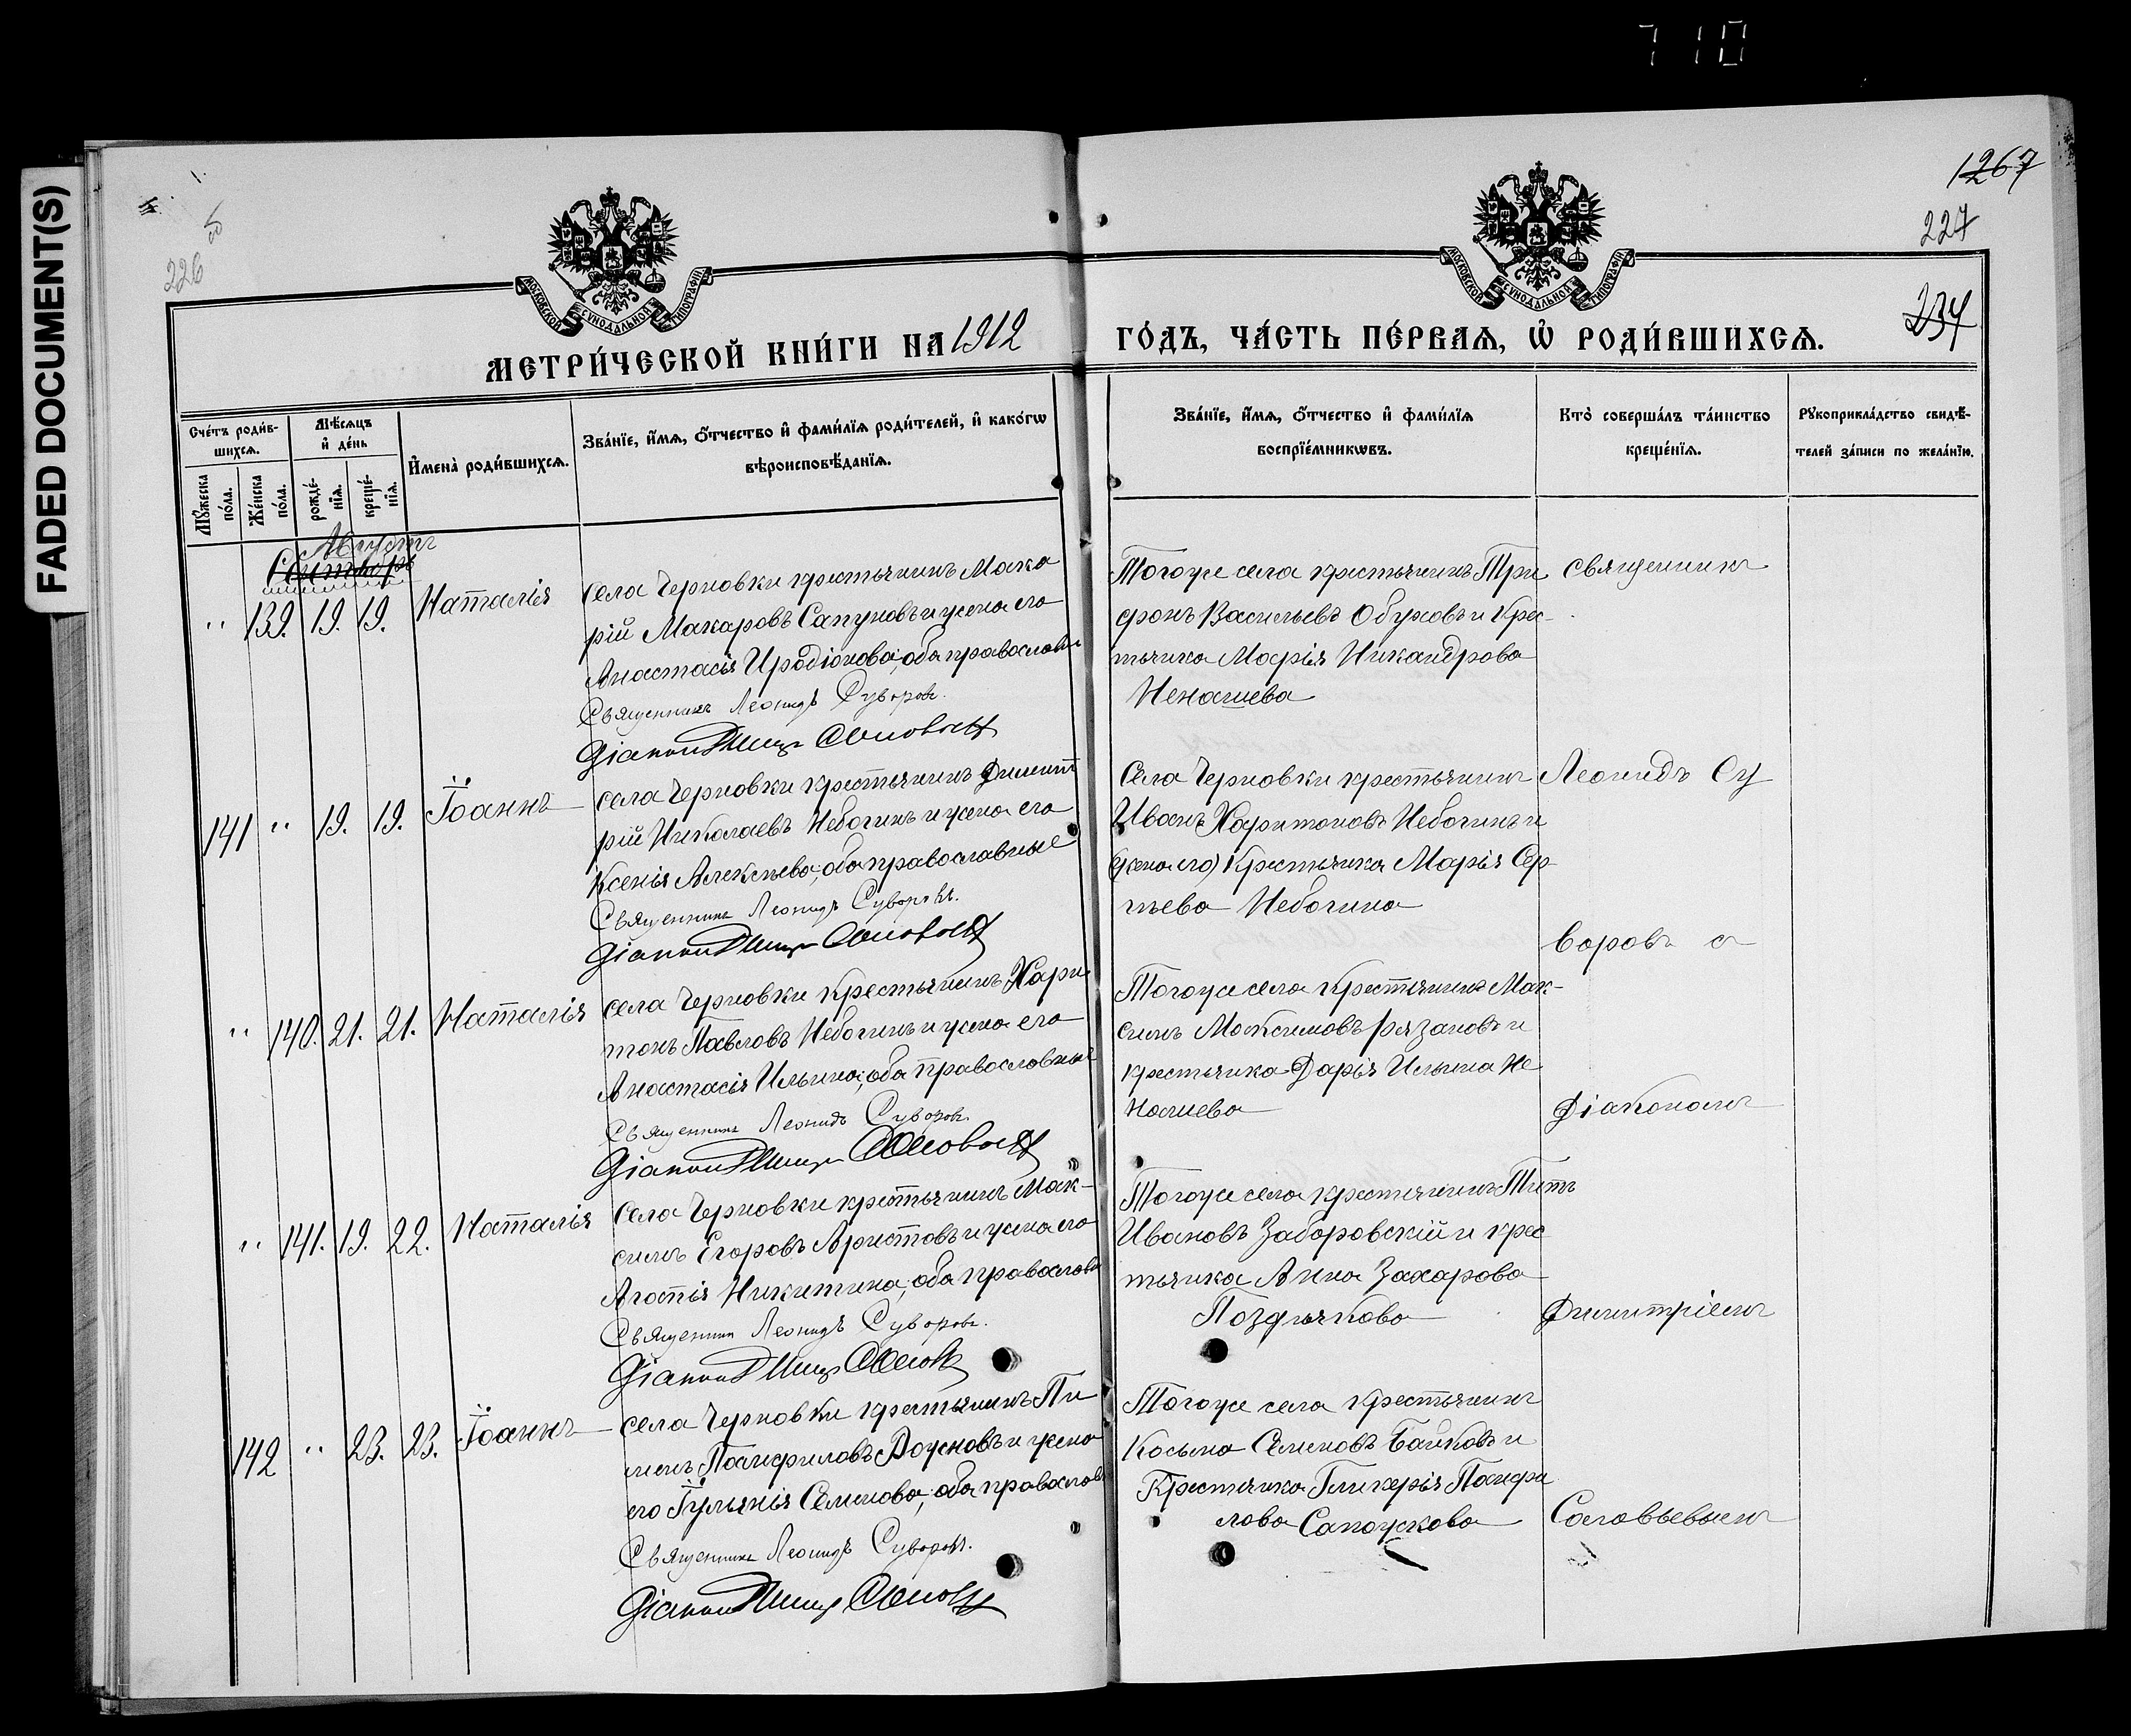 710
FADED DOCUMENT(S)
1267
227
226
234
МОСКОВСКОЙ СѴНОДАЛЬНОЙ ТИПОГРАФІИ
МОСКОВСКОЙ СѴНОДАЛЬНОЙ ТИПОГРАФІИ
МЕТРИ́ЧЕСКОЙ КНИ́ГИ НА 1912 ГО́ДЪ, ЧА́СТЬ ПЕ́РВАЯ, Ѡ҆ РОДИ́ВШИХСЯ.
Сче́тъ роди́в-
шихся.
Мꙋ́жеска по́ла.
Же́нска по́ла.
Мѣ́сяцъ
и҆ де́нь
рожде́-
нїя.
креще́-
нїя.
И҆мена̀ роди́вшихся.
Зва́нїе, и҆́мя, ѻ҆́тчество и҆ фами́лїя роди́телей, и҆ како́гѡ
вѣроисповѣ́данїя.
Зва́нїе, и҆́мя, ѻ҆́тчество и҆ фами́лїя
воспрїе́мникѡвъ.
Кто̀ соверша́лъ та́инство
креще́нїя.
Рꙋкоприкла́дство свидѣ́-
телей за́писи по жела́нїю.
Августъ
Сентябрь
" 139. 19. 19. Наталія
села Черновки крестьянинъ Мака
рій Макаровъ Сапуновъ и жена его
Анастасія Иродіонова; оба православн
Священникъ Леонидъ Суворовъ.
Діаконъ Дмитр Соловьевъ
Тогоже села крестьянинъ Три
фонъ Васильевъ Обуховъ и крес-
тьянка Марія Никандрова
Ненашева
священникъ
141 " 19. 19. Іоаннъ
села Черновки крестьянинъ Димит
рій Николаевъ Небогинъ и жена его
Ксенія Алексѣева; оба православные
Священникъ Леонидъ Суворовъ.
Діаконъ Дмитр Соловьевъ
Села Черновки крестьянинъ
Иванъ Харитоновъ Небогинъ и
(жена его) крестьянка Марія Сер-
гѣева Небогина
Леонидъ Су
воровъ съ
" 140. 21. 21. Наталія
села Черновки крестьянинъ Хари
тонъ Павловъ Небогинъ и жена его
Анастасія Ильина; оба православные
Священникъ Леонидъ Суворовъ.
Діаконъ Дмитр Соловьевъ
Тогоже села крестьянинъ Мак-
симъ Максимовъ Рязановъ и
крестьянка Дарія Ильина Не
нашева
Діакономъ
" 141. 19. 22. Наталія
Села Черновки крестьянинъ Мак-
симъ Егоровъ Аристовъ и жена его
Агатія Никитина; оба православн
Священникъ Леонидъ Суворовъ.
Діаконъ Дмитр Соловьевъ
Тогоже села крестьянинъ Титъ
Ивановъ Заборовскій и крес
тьянка Анна Захарова
Позднякова
Димитріемъ
142 " 23. 23. Іоаннъ
села Черновки крестьянинъ Пи
менъ Памфиловъ и жена
его Іульянія Семенова; оба православ
Священникъ Леонидъ Суворовъ.
Діаконъ Дмитр Соловьевъ
Тогоже села крестьянинъ
Косьма Семеновъ Байковъ и
Крестьянка Гликерія Памфи
лова Сапожкова
Соловьевымъ